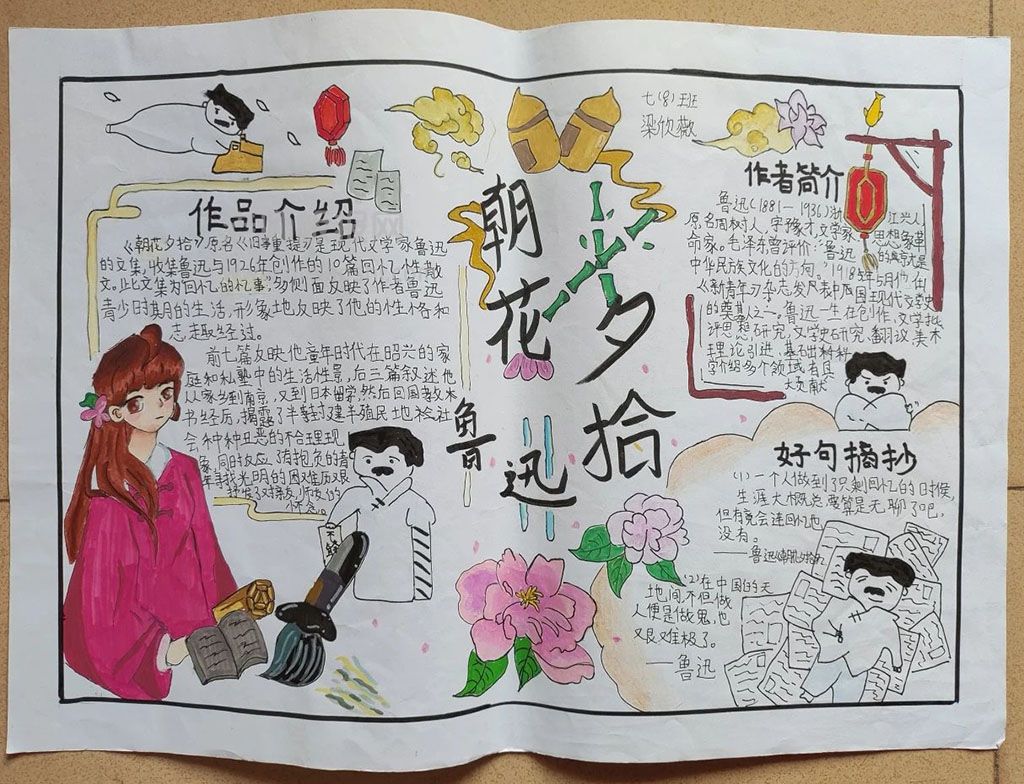 七(8)班
梁欣薇
朝花夕拾
鲁迅
作品介绍
《朝花夕拾》原名《旧事重提》是现代文学家鲁迅
的文集,收集鲁迅与1926年创作的10篇回忆性散
文。此文集为回忆的忆事",多侧面反映了作者鲁迅
青少时期的生活,形象地反映了他的性格和
志趣经过。
前七篇反映他童年时代在昭兴的家
庭和私塾中的生活性景,后三篇叙述他
从家乡到南京,又到日本留学,然后回国教木
书经历,揭露了半封建半殖民地社会
会种种丑恶的不合理现
象,同时反应有抱负的青
年寻找光明的困难历艰
怀念。
作者简介
鲁迅(1881-1936)浙江兴人
原名周树人,字豫才,文学家思想家革
命家。毛泽东曾评价:"鲁迅的方向就是
中华民族文化的方向。"1918年5月
《新青年》杂志发表中国现代文学史
的奠基人之一。鲁迅一生在创作,文学批
评思想研究,文学史研究,翻议,美术
理论引进,基础科
学介绍多个领域有
大贡献
好句摘抄
(1)一个人做到了只剩回忆的日时候,
生涯大概总要算是无聊了吧,
但有竟会连回忆也
没有。
——鲁迅《朝花夕拾》
(2)在中国的天
地间,不但做
人便是做鬼,也
艰难极了。
——鲁迅